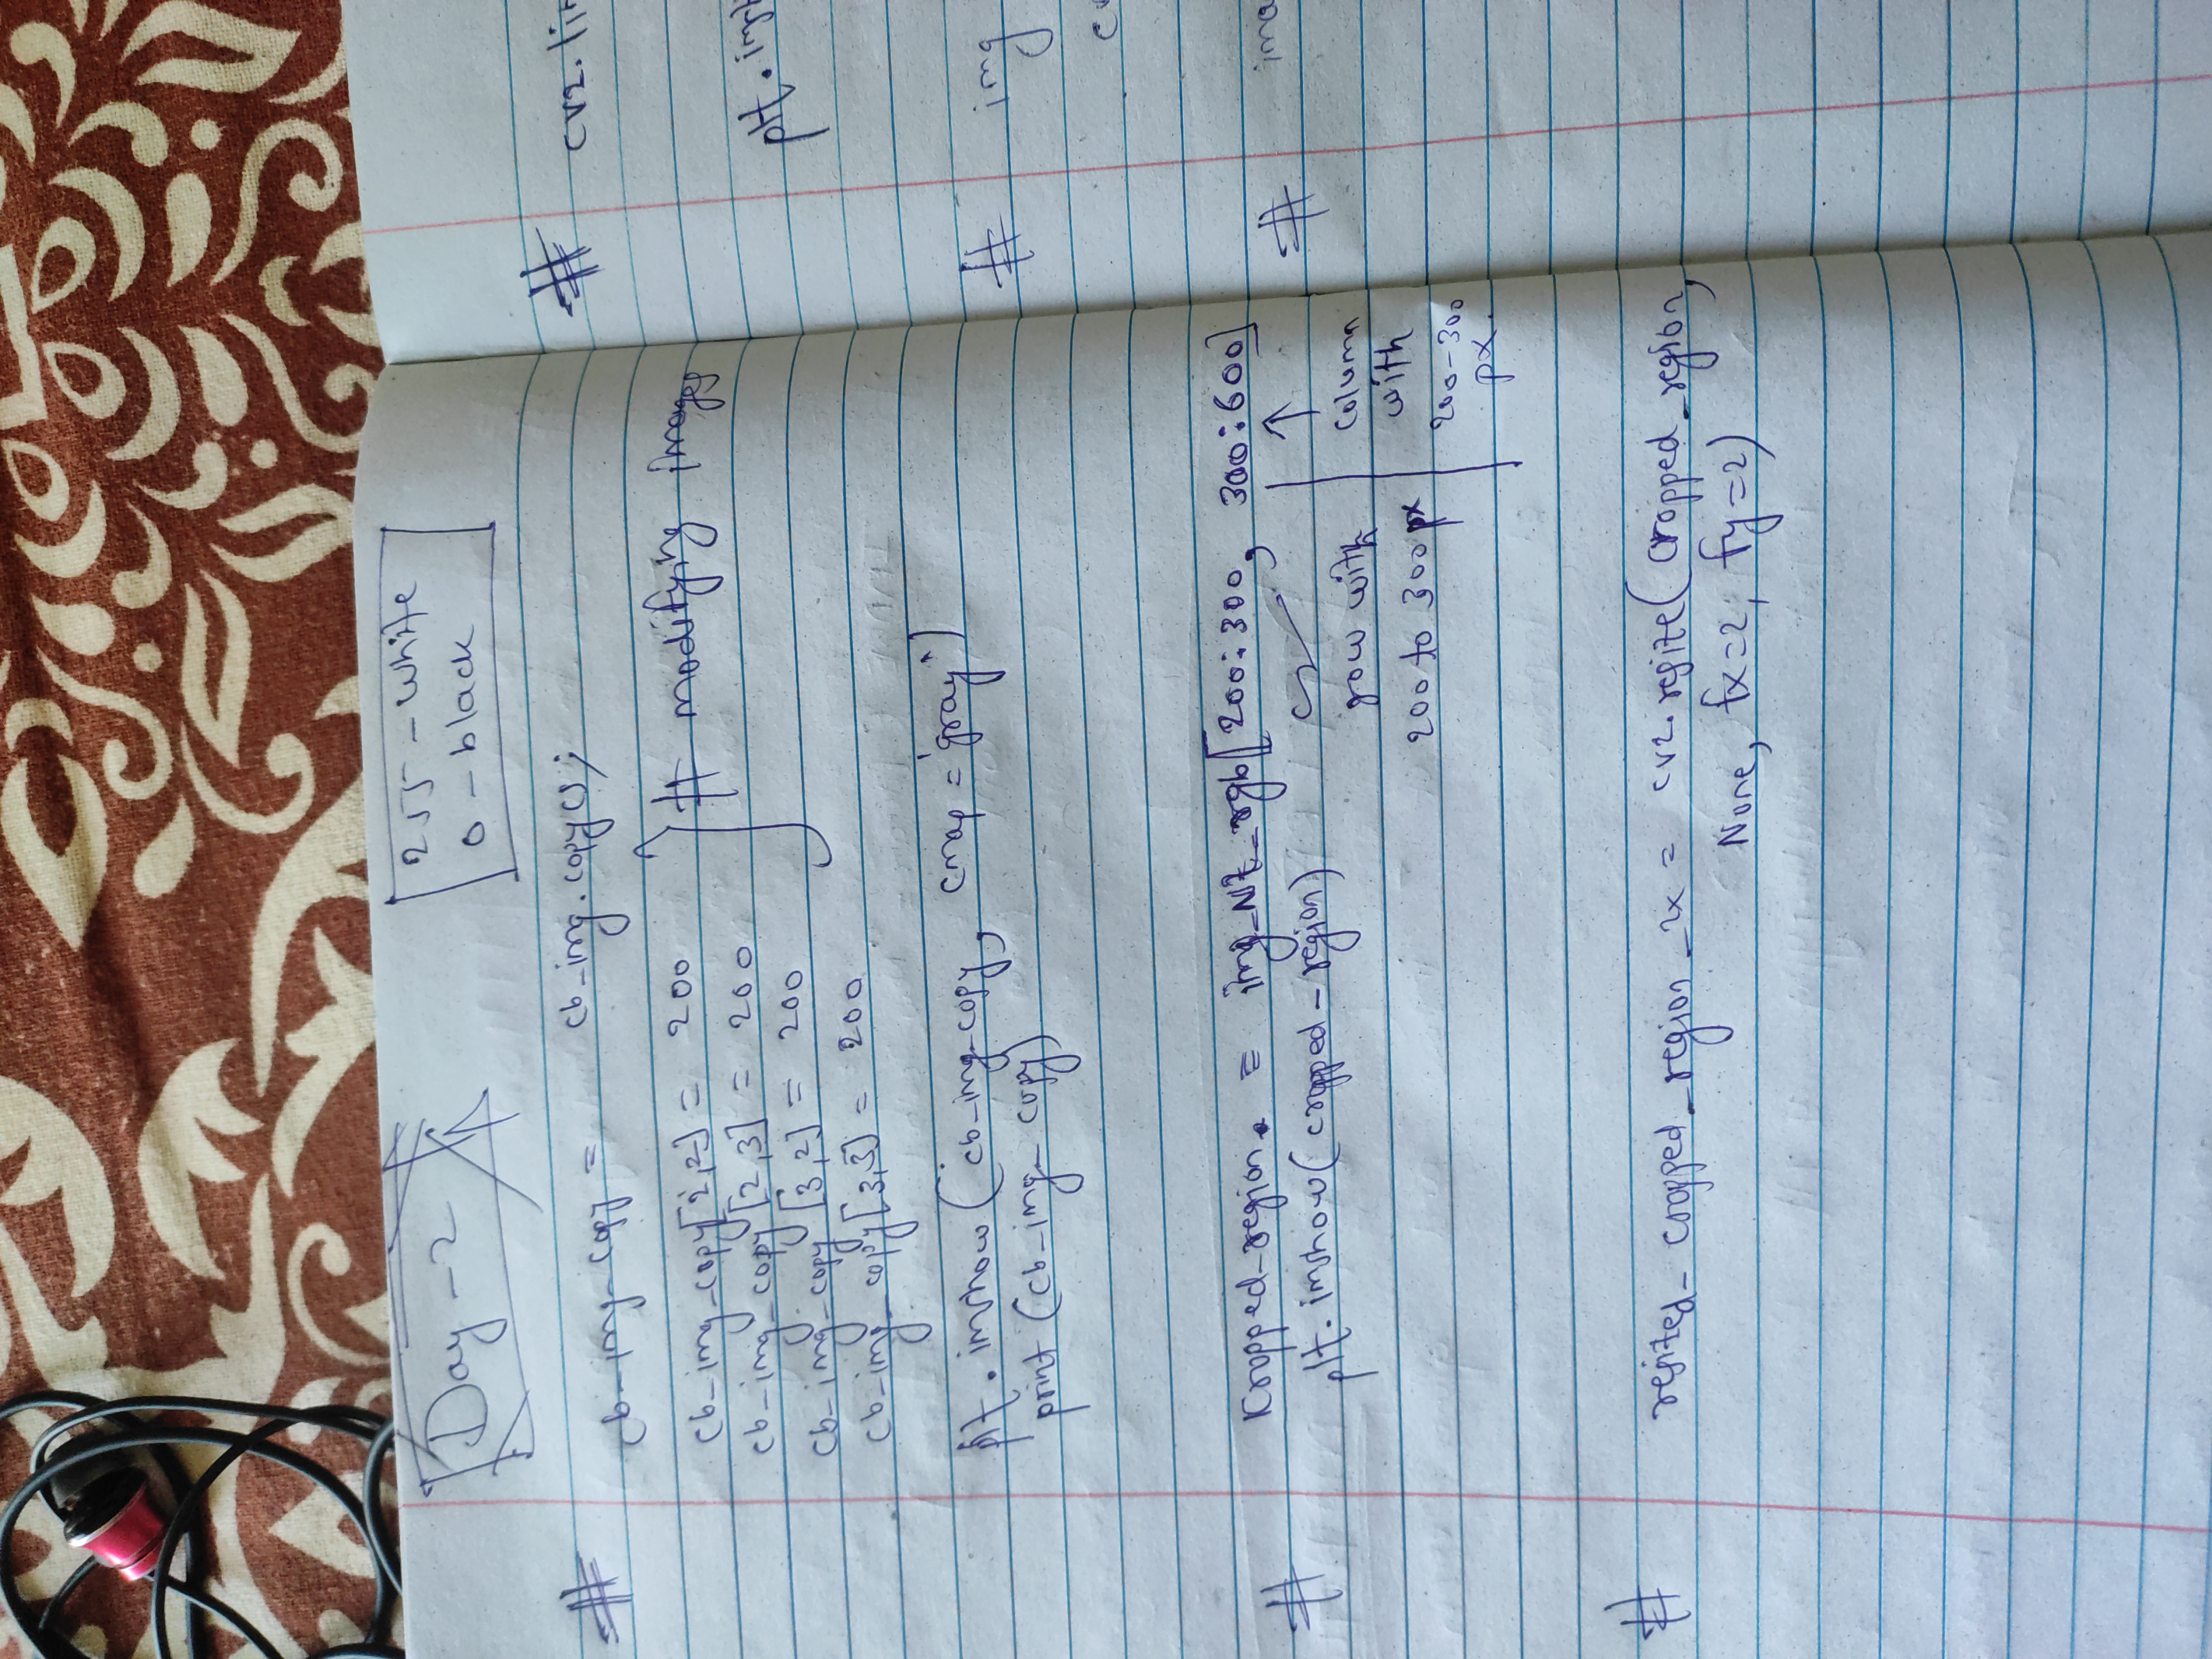 Day-2
255 - white
0 - black
# cb-img-copy = cb-img.copy();
cb-img-copy[2,2] = 200
cb-img-copy[2,3] = 200 # modifying images
cb-img-copy[3,2] = 200
cb-img-copy[3,3] = 200
plt.imshow(cb-img-copy, cmap='gray')
print(cb-img-copy)
# cropped-region = img-NZ-rgb[200:300, 300:600]
plt.imshow(cropped-region)
row with
200 to 300 px
column
with
200-300
px.
# resized-cropped-region-2x = cv2.resize(cropped-region,
None, fx=2, fy=2)
# cv2.
plt.
# img
#